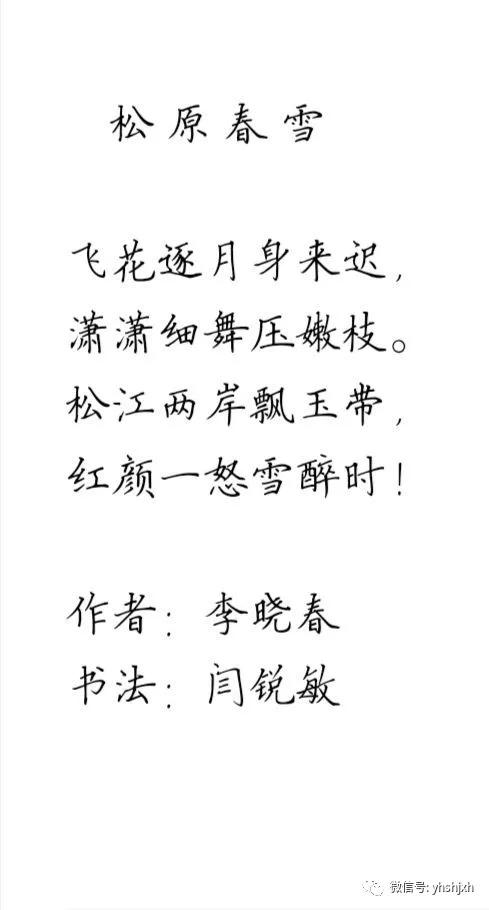 松原春雪
飞花逐月身来迟,
潇潇细舞压嫩枝。
松江两岸飘玉带,
红颜一怒雪醉时!
作者: 李晓春
书法: 闫锐敏
微信号: yhshjxh